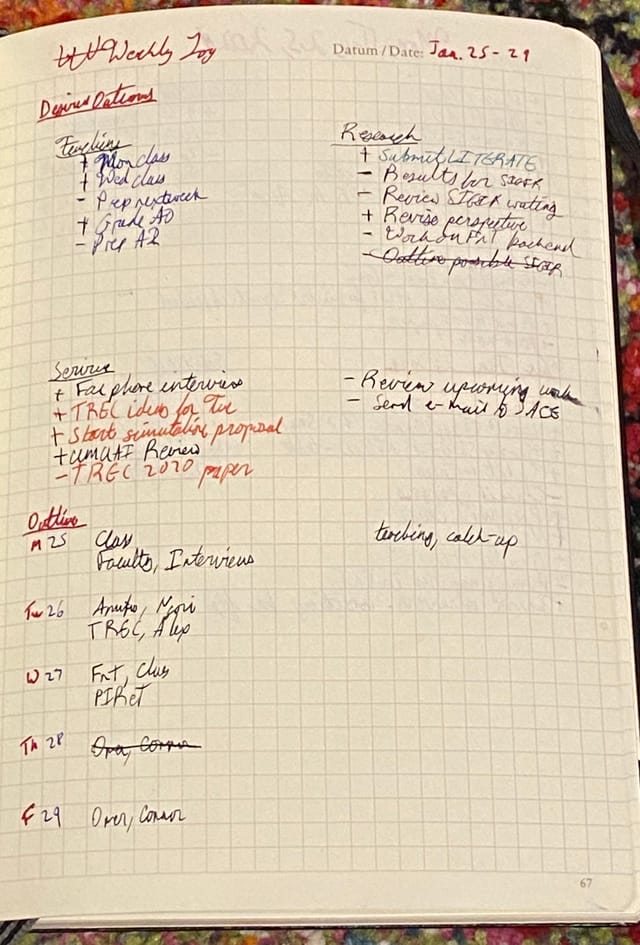 Weekly Log
Datum / Date: Jan. 25 - 29
Desired Outcomes
Teaching
+ Mon class
+ Wed class
- Prep next week
+ Grade A0
- Prep A2
Research
+ Submit LITERATE
- Results for SIGIR
- Review SIGIR writing
+ Revise perspective
- Work on FnT backend
- Outline possible SIGIR
Service
+ Fac phone interviews
+ TREC ideas for Tue
+ Start simulation proposal
+ UMUAI Review
- TREC 2020 paper
- Review upcoming
- Send e-mail to ACE
Outline
M 25 Class
Faculty, Interviews
teaching, catch-up
Tu 26
TREC, Alex
W 27 FnT, Class
PIReT
Th 28
F 29 Omer, Connor
67